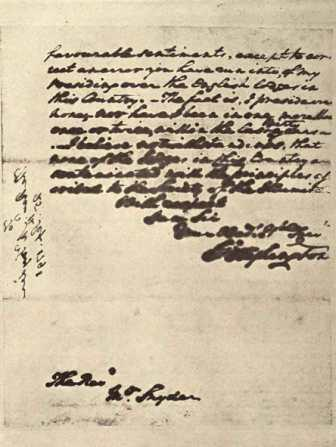 favourable sentiments, except to cor-
rect an error you have run into, of my
Presiding over the English lodges in
this Country. The fact is, I preside over
none, nor have I been in one, more than
once or twice, within the last thirty years.
I believe notwithstanding, that
none of the Lodges in this Country are
contaminated with the principles as-
cribed to the Society of the Illuminati
With respect
I am Sir
Your Obedt Hble Ser
Go Washington
The Revd
Mr Snyder